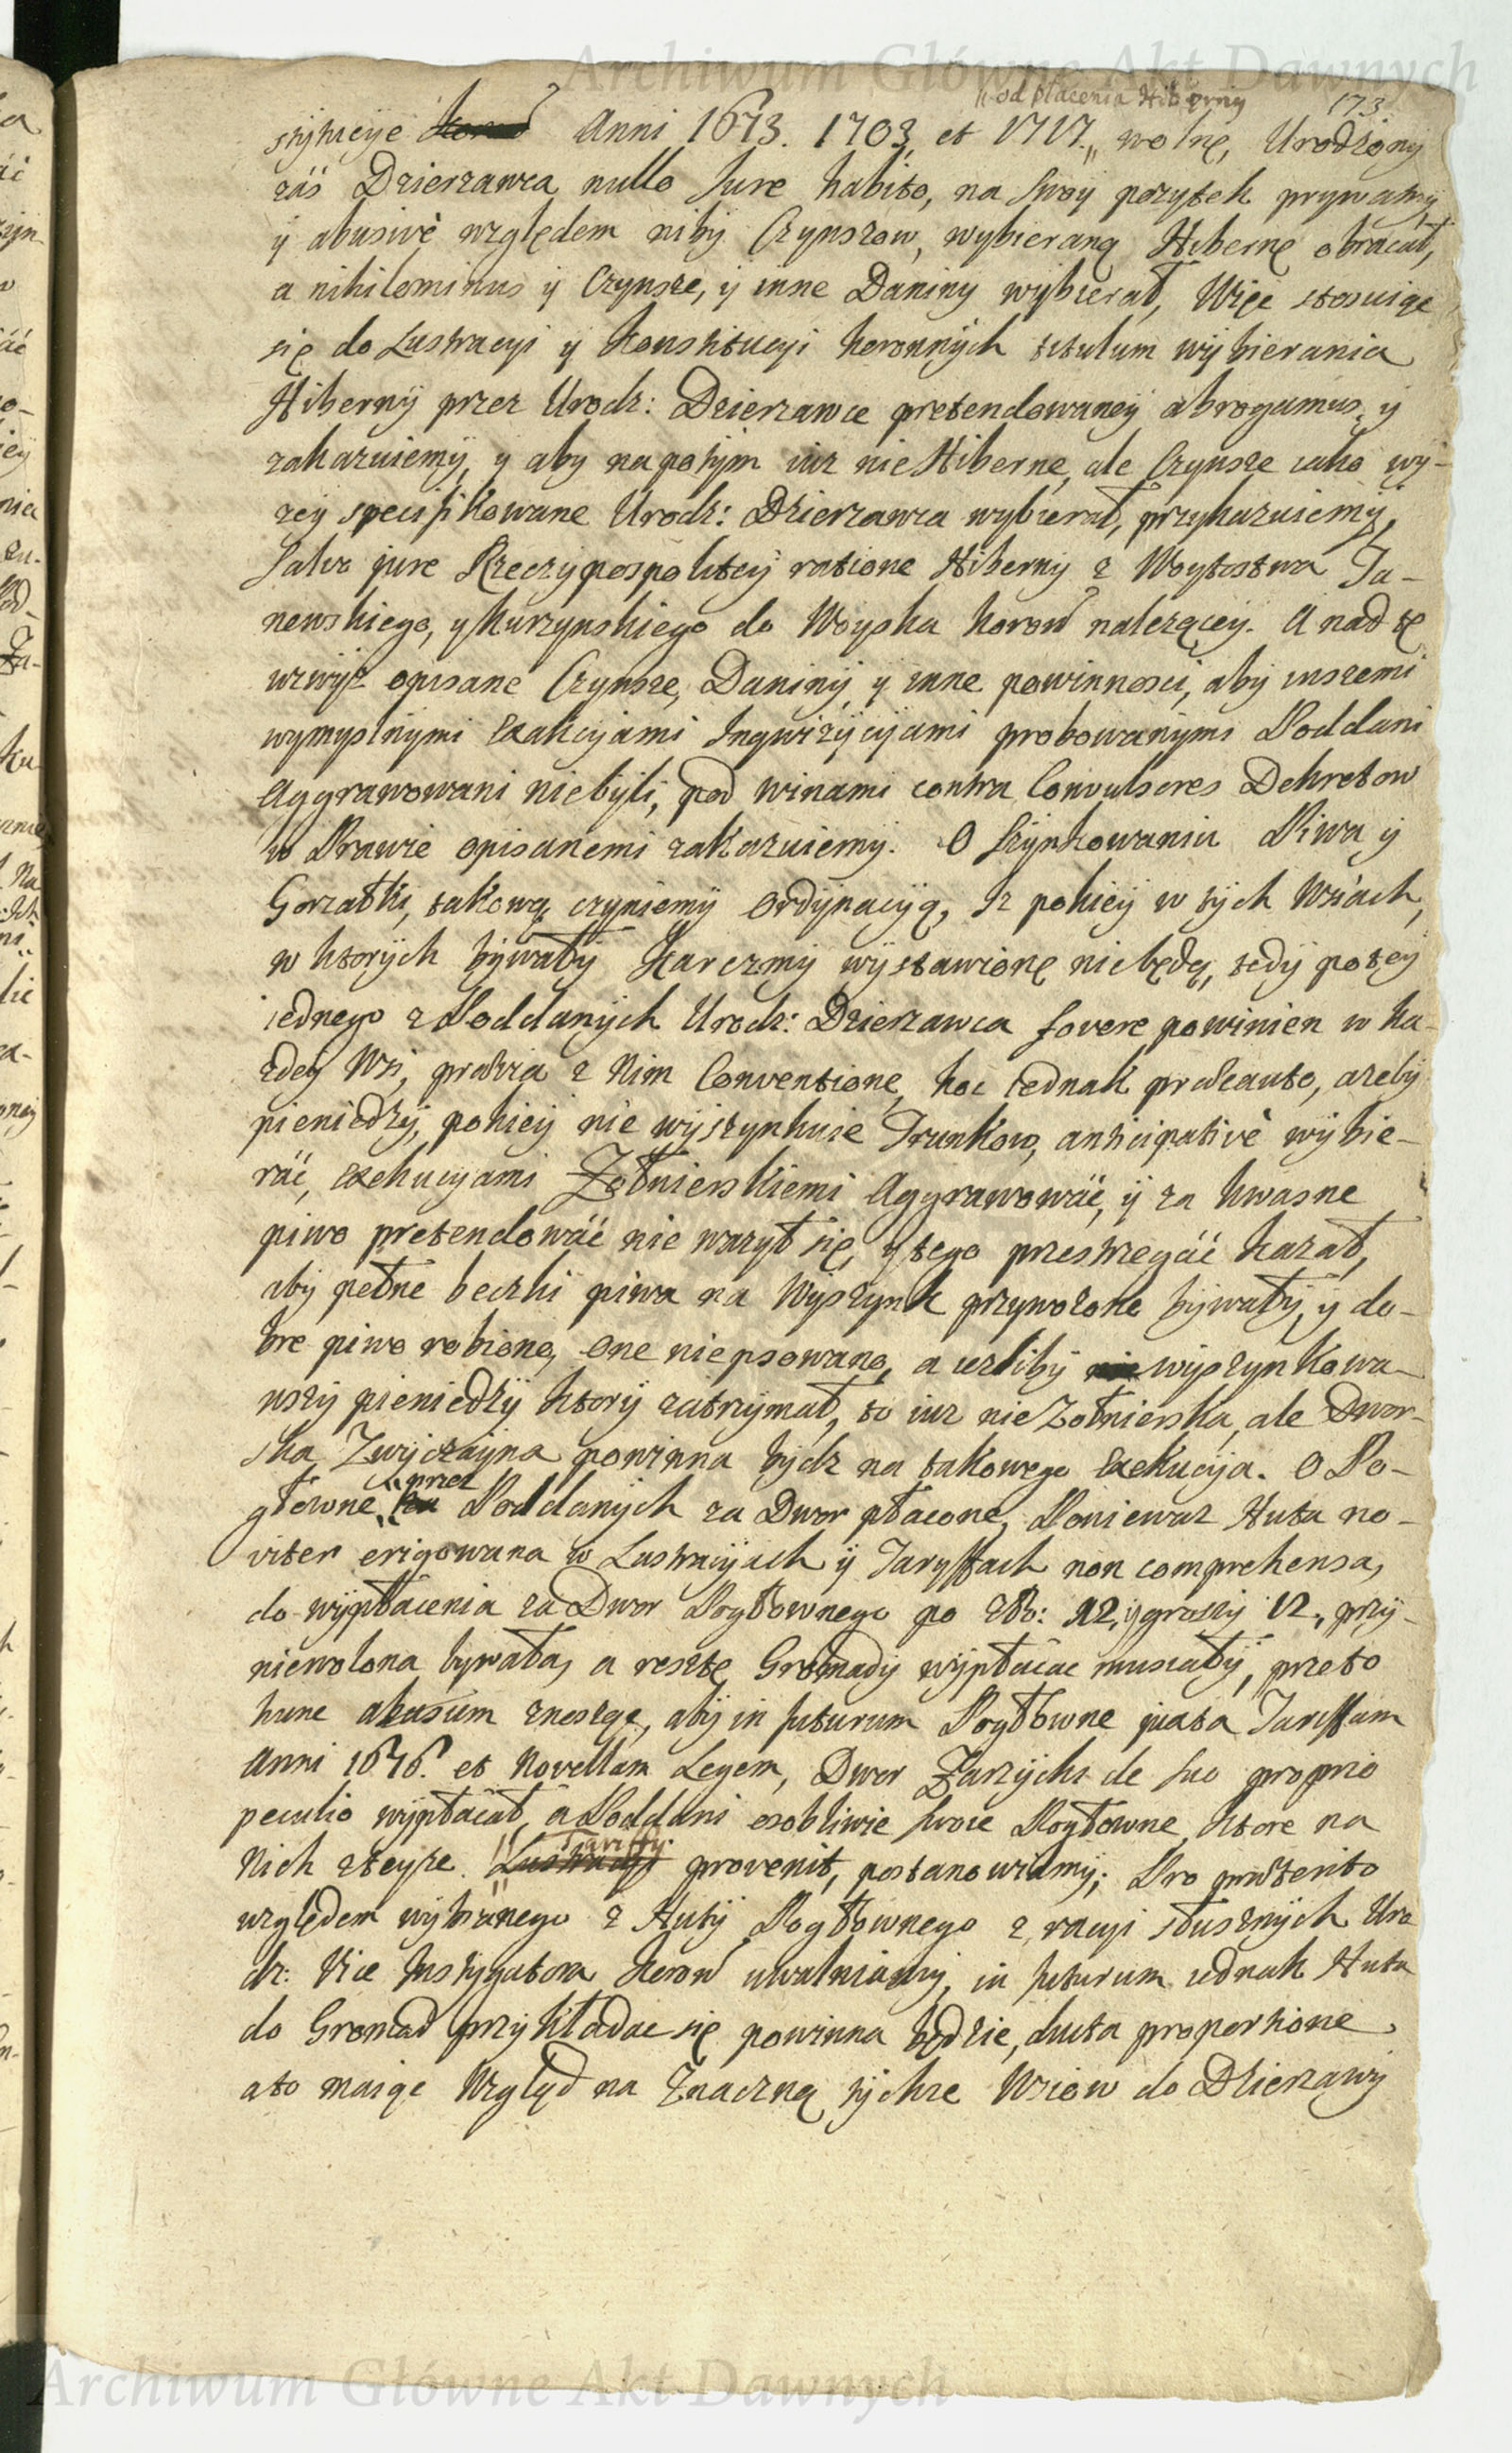 Archiwum Główne Akt Dawnych
"od płacenia Hiberny
173
stytucye Anni 1673. 1703, et 1717." wolne, Urodzony
zaś Dzierzawca nullo Jure habito, na swoÿ pozytek prywatnÿ
ÿ abusivè względem nibÿ Czynszow, wybieraną Hibernę obracał,
a nihilominus ÿ Czynsze, ÿ inne Daniny wybierał, Więc stosuiąc
się do Lustracyi ÿ Konstitucyi koronnÿch titulum wÿbierania
Hibernÿ przez Urodz: Dzierzawce pretendowaneÿ abrogamus, ÿ
zakazuiemÿ, ÿ aby napotÿm iuz nie Hibernę, ale Czynsze iako wÿ-
zeÿ specifikowane Urodz: Dzierzawca wybierał, przykazuiemÿ,
Salvo jure Rzeczÿpospoliteÿ ratione Hibernÿ z Woytostwa Ja-
newskiego, ÿ Kurzynskiego do Woyska Koron nalezącey. A nad te
wzwÿsz opisane Czynsze, Daninÿ, ÿ inne powinnosci, abÿ inszemi
wymyslnymi Exakcyjami Inqwizÿcyjami probowanymi Poddani
Aggrawowani niebÿli, pod winami contra Convulsores Dekretow
w Prawie opisanemi zakazuiemÿ. O Szÿnkowaniu Piwa ÿ
Gorzałki, takową czyniemÿ Ordÿnacyą, Iz pokieÿ w tÿch Wsiach,
w ktorÿch bÿwałÿ Karczmÿ wÿstawione niebędą, tedÿ poteÿ
iednego z Poddanÿch Urodz: Dzierzawca fovere powinien w Ka-
zdeÿ Wsi, prævia z Nim Conventione, hoc iednak præcauto, azebÿ
pieniedzÿ, pokieÿ nie wÿszynkuie Trunkow, anticipativè wÿbie-
rać, exekucyjami Zołnierskiemi Aggrawować, ÿ za kwasne
piwo pretendować nie wazył się, ÿ tego przestrzegać kazał,
abÿ pełne beczki piwa na Wÿszynk przywozone bÿwałÿ, ÿ do-
bre piwo robiono, one niepsowano, a iezlibÿ wÿszynkowa-
wszÿ pieniedzÿ ktorÿ zatrzÿmał, to iuz nie Zołnierska, ale Dwor-
ska Zwÿczaÿna powinna bÿdz na takowego Exekucÿja. O Po-
główne przez Poddanÿch za Dwor płacone, Poniewaz Huta no-
viter erigowana w Lustracÿach ÿ Taryffach non comprehensa,
do wÿpłacenia za Dwor Pogłownego po Zło: 12, ÿ groszÿ 12., przÿ-
niewolona bywała, a resztę Gromadÿ wÿpłacac musiałÿ, przeto
hunc abusum znosząc, abÿ in futurum Pogłowne juxta Tariffam
Anni 1676. et Novellam Legem, Dwor Zarzÿcki de suo proprio
peculio wÿpłacał, a Poddani osobliwie swoie Pogłowne, ktore na
Nich z teyze "Tariffy" provenit, postanowiamÿ; Pro præterito
względem wÿbranego z Hutÿ Pogłownego z racyi słusznÿch Uro
dz: Vice Instygatora Koron uwalniamÿ, in futurum iednak Huta
do Gromad przykładac się powinna będzie, Juxta proportione,
ato maiąc Wzgląd na Znaczną tÿchze Wsiow do Dzierzawÿ
Archiwum Główne Akt Dawnych